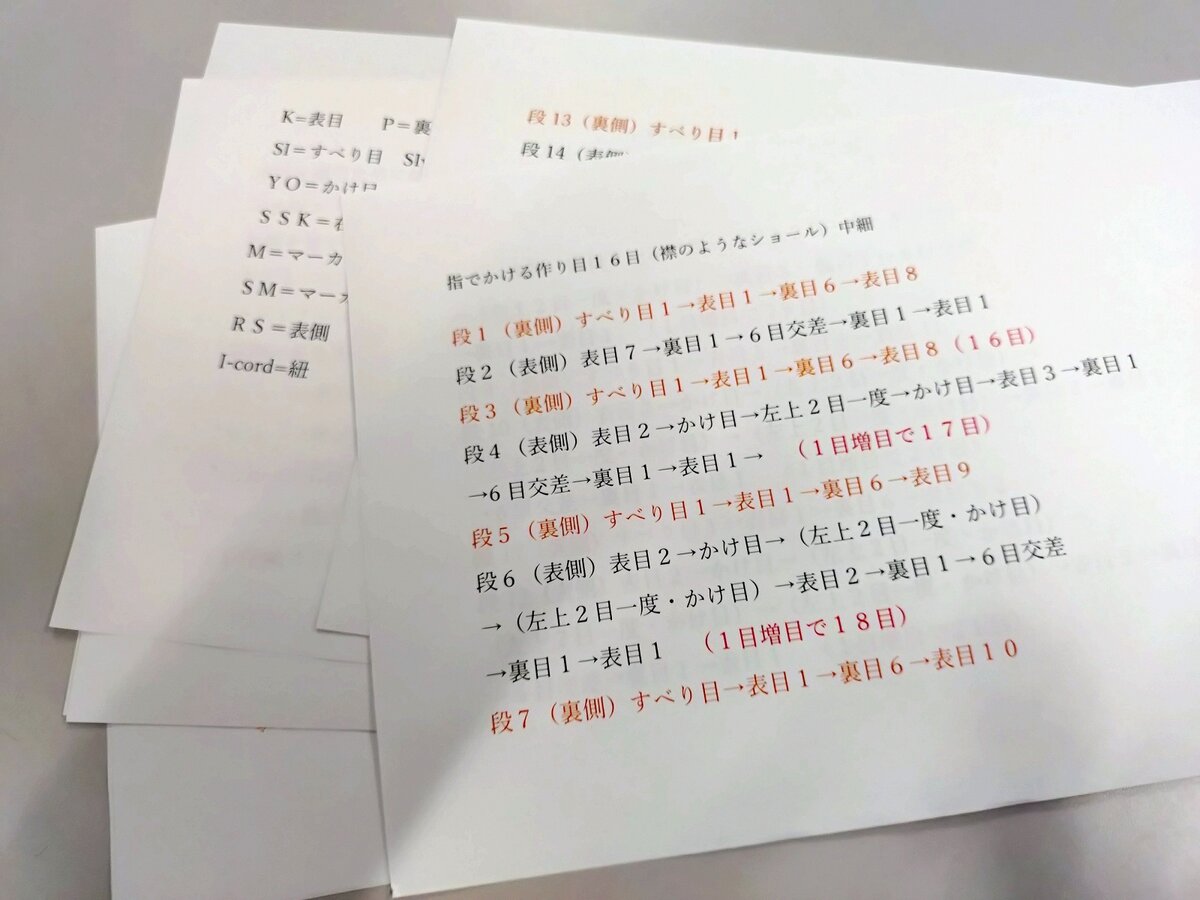 K=表目 P=裏
SI=すべり目 SI
YO=かけ目
SSK=
M=マーカ
SM=マーカ
RS=表側
I-cord=紐
段13（裏側）すべり目1
段14（表側
指でかける作り目１６目（襟のようなショール）中細
段１（裏側）すべり目１→表目１→裏目６→表目８
段２（表側）表目７→裏目１→６目交差→裏目１→表目１
段３（裏側）すべり目１→表目１→裏目６→表目８（１６目）
段４（表側）表目２→かけ目→左上２目一度→かけ目→表目３→裏目１
→６目交差→裏目１→表目１→ （１目増目で１７目）
段５（裏側）すべり目１→表目１→裏目６→表目９
段６（表側）表目２→かけ目→（左上２目一度・かけ目）
→（左上２目一度・かけ目）→表目２→裏目１→６目交差
→裏目１→表目１ （１目増目で１８目）
段７（裏側）すべり目→表目１→裏目６→表目１０